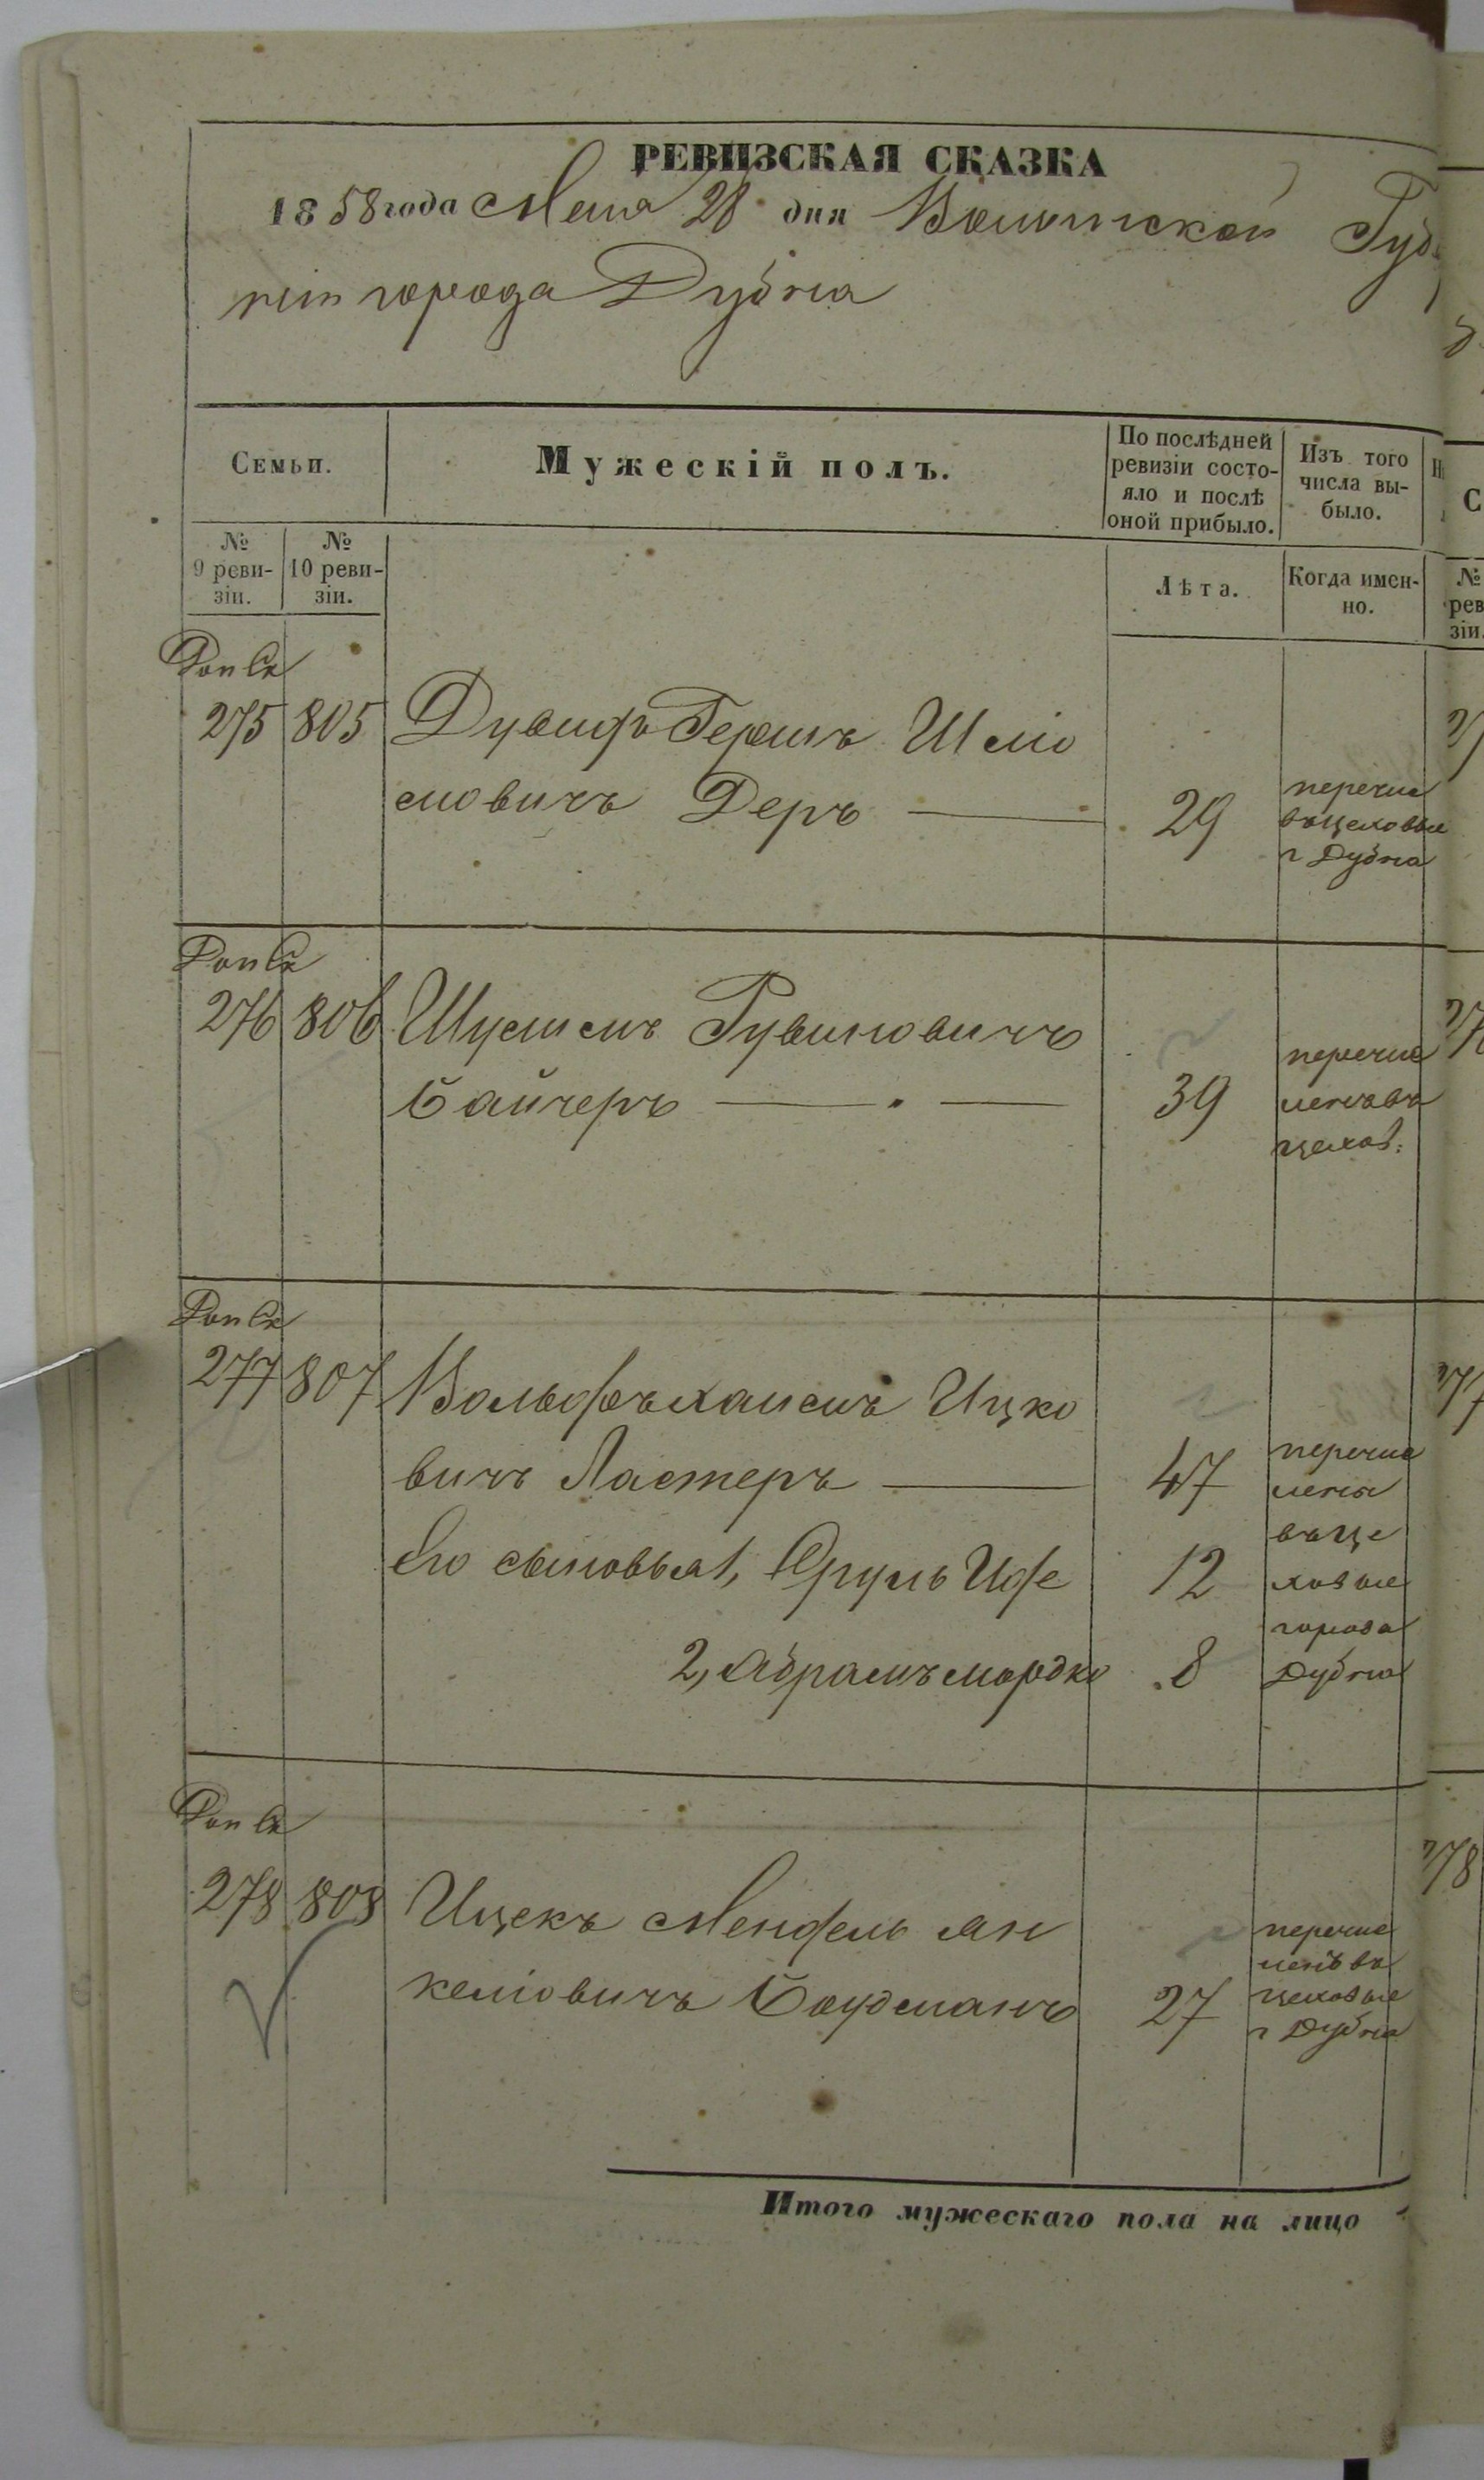 РЕВИЗСКАЯ СКАЗКА
1858 года Мая 28 дня Волынской Губ
ніи города Дубна
Семьи.
Мужескій полъ.
По послѣдней ревизіи состо-
яло и послѣ оной прибыло.
Изъ того числа вы-
было.
№ 9 реви-
зіи.
№ 10 реви-
зіи.
Лѣта.
Когда имен-
но.
Доп Ск
275 805 Дувидъ Гершъ Шліо
мовичъ Деръ 29
перечис
въ цеховые
г Дубна
Доп Ск
276 806 Шулимъ Рувиновичъ
Байчеръ 39
перечис
ленъ въ
цехов:
Доп Ск
277 807 Вольфъ хаимъ Ицко
вичъ Ластеръ 47
Его сыновья 1, Сруль Иосе 12
2, Абрамъ мордко 8
перечис
лены
въ це
ховые
города
Дубна
Доп Ск
278 808 Ицекъ Мендель ян
келіовичъ 27
перечис
ленъ въ
цеховые
г Дубна
Итого мужескаго пола на лицо